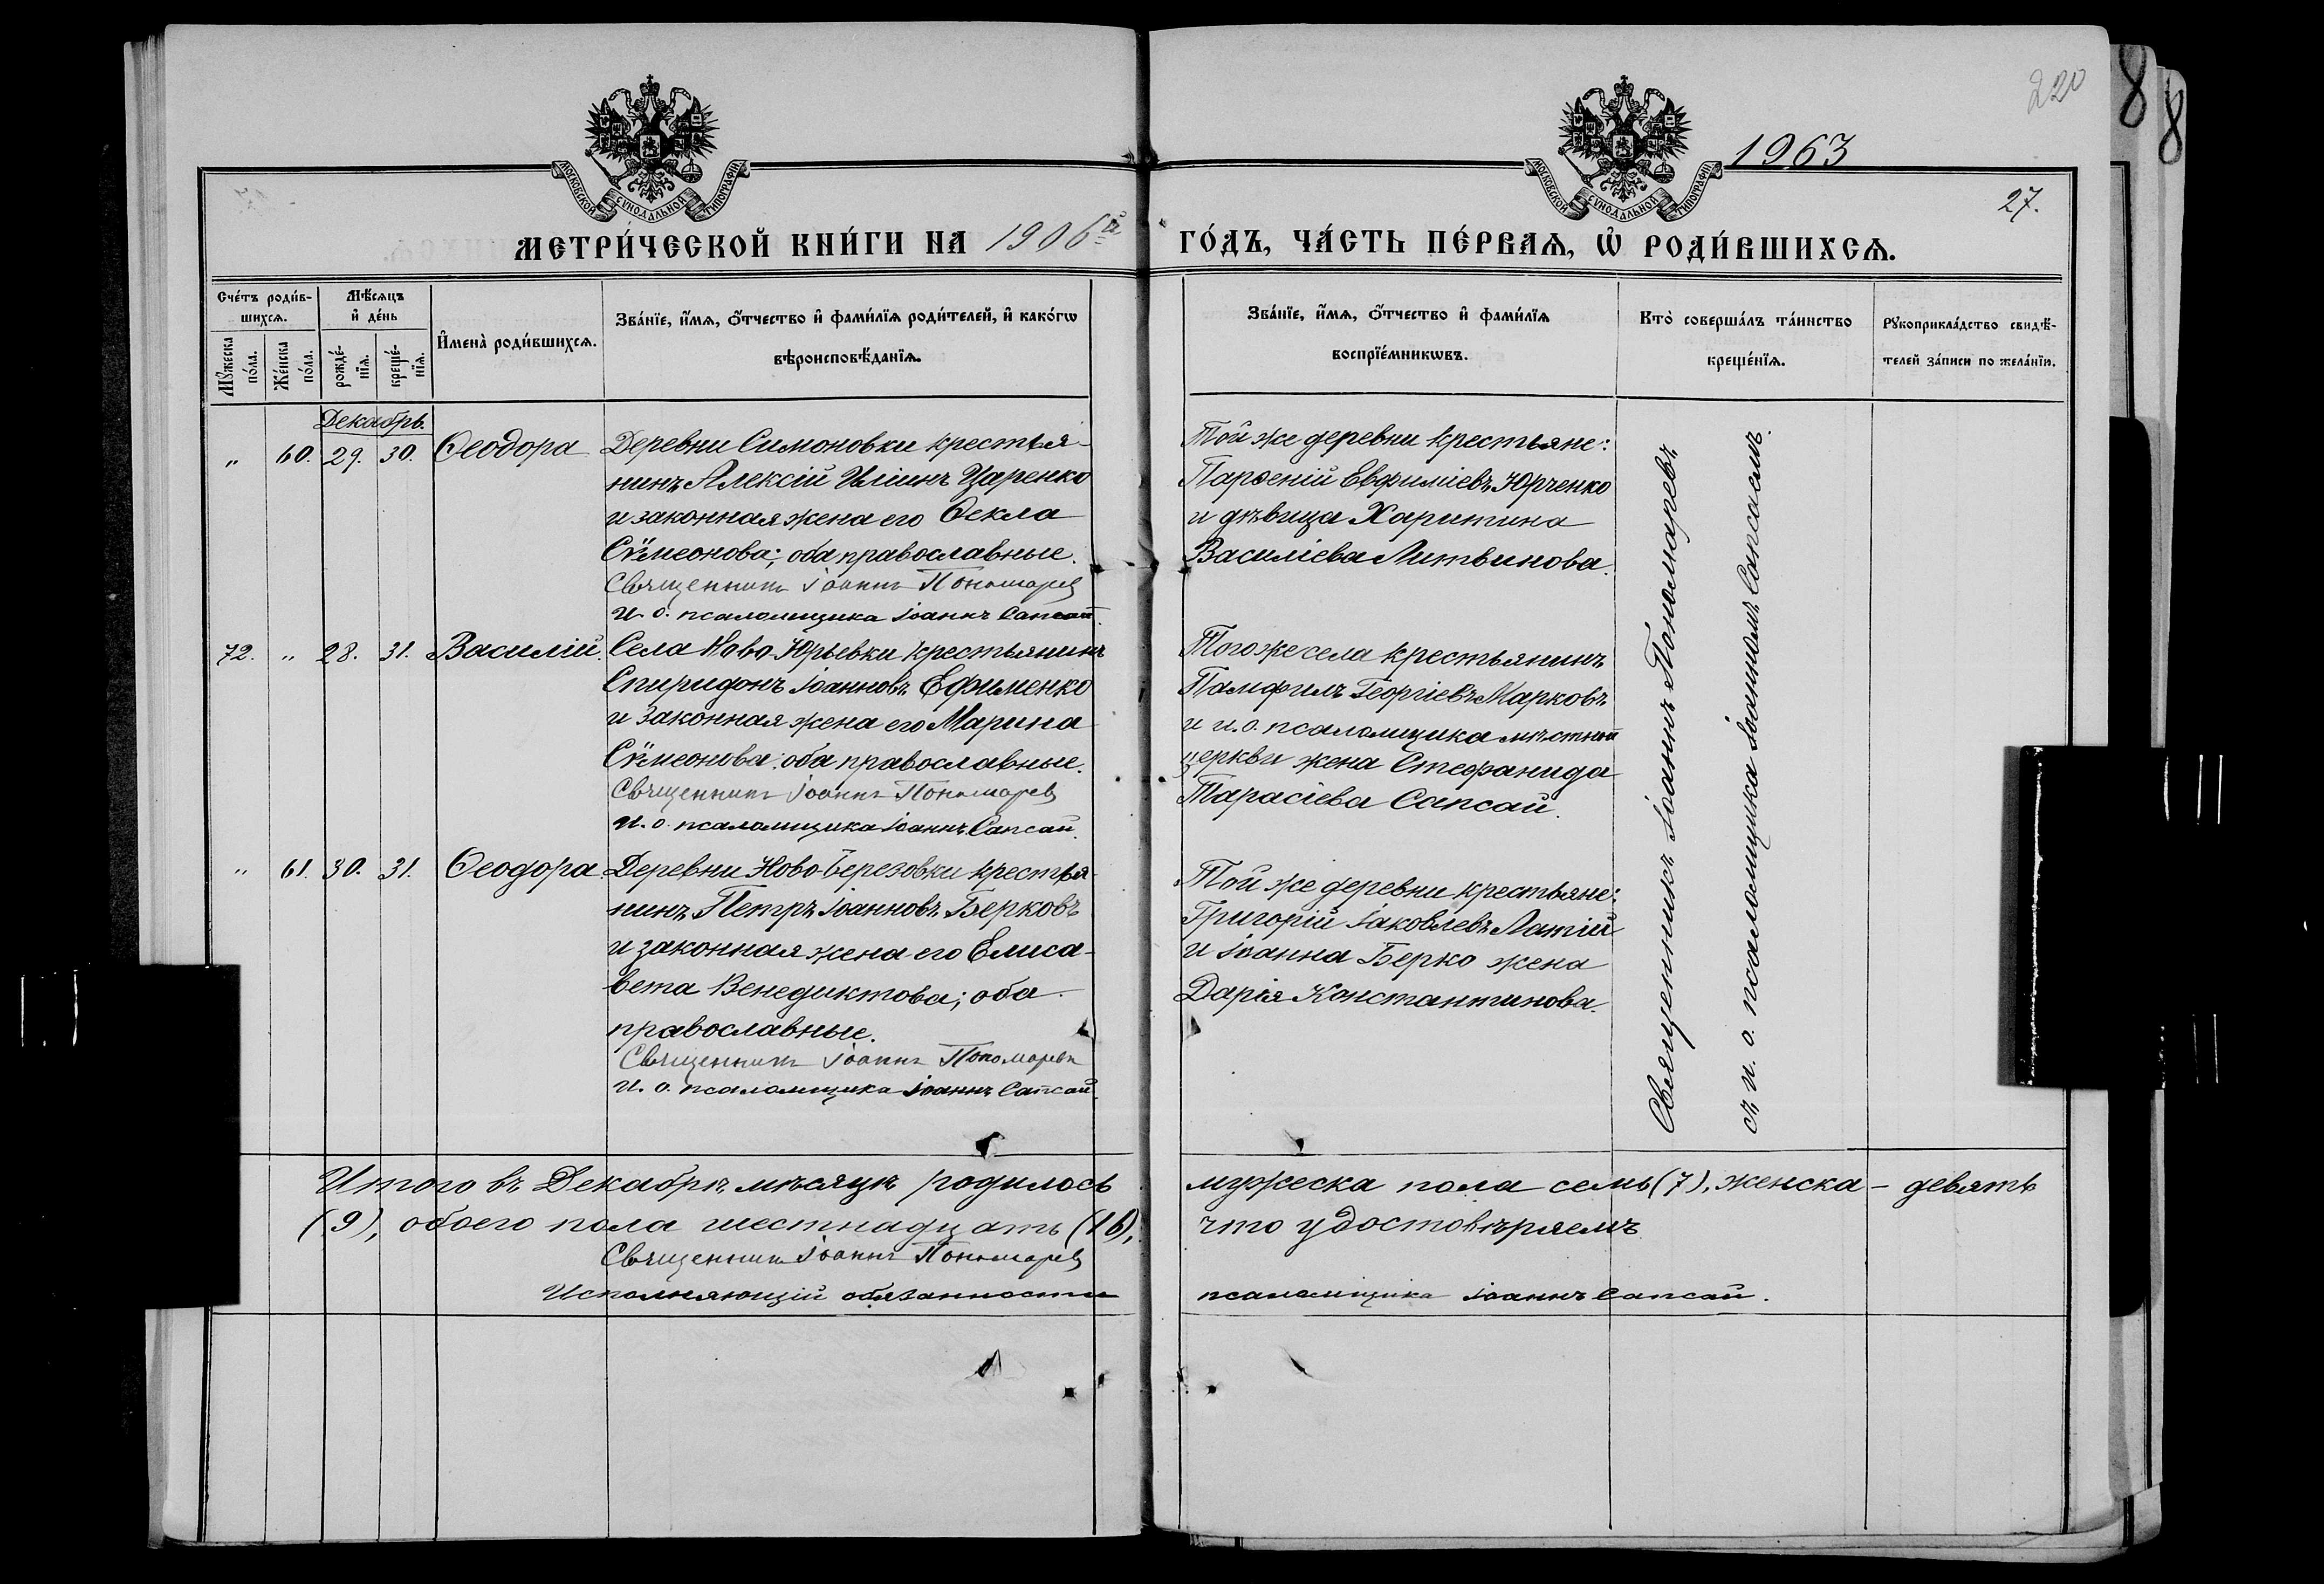 220
8
8
1963
27.
МОСКОВСКОЙ СѴНОДАЛЬНОЙ ТИПОГРАФІИ
МОСКОВСКОЙ СѴНОДАЛЬНОЙ ТИПОГРАФІИ
МЕТРИ́ЧЕСКОЙ КНИ́ГИ НА 1906й ГО́ДЪ, ЧА́СТЬ ПЕ́РВАѦ, Ѡ҆ РОДИ́ВШИХСѦ.
Сче́тъ роди́в-
шихсѧ.
Мꙋ́жеска по́ла.
Же́нска по́ла.
Мѣ́сѧцъ
и҆ де́нь
рожде́-
нїѧ.
креще́-
нїѧ.
И҆мена̀ роди́вшихсѧ.
Зва́нїе, и҆́мѧ, ѻ҆́тчество и҆ фами́лїѧ роди́телей, и҆ како́гѡ
вѣроисповѣ́данїѧ.
Зва́нїе, и҆́мѧ, ѻ҆́тчество и҆ фами́лїѧ
воспрїе́мникѡвъ.
Кто̀ соверша́лъ та́инство
креще́нїѧ.
Рꙋкоприкла́дство свидѣ́-
телей за́писи по жела́нїи.
Декабрь.
„ 60. 29. 30. Ѳеодора
Деревни Симоновки крестья-
нинъ Алексій Иліинъ Царенко
и законная жена его Ѳекла
Сѷмеонова; оба православные.
Священникъ Іоаннъ Пономарев
И. о. псаломщика Іоаннъ Сапсай.
Той же деревни крестьяне:
Парѳеній Евфиміевъ Юрченко
и дѣвица Харитина
Василіева Литвинова.
72. „ 28. 31. Василій.
Села Ново-Юрьевки крестьянинъ
Спиридонъ Іоанновъ Ефименко
и законная жена его Марина
Сѷмеонова: оба православные.
Священникъ Іоаннъ Пономарев
И. о. псаломщика Іоаннъ Сапсай.
Тогоже села крестьянинъ
Памфилъ Георгіевъ Марковъ
и и. о. псаломщика мѣстной
церкви жена Стефанида
Тарасіева Сапсай.
„ 61. 30. 31. Ѳеодора.
Деревни Ново-Березовки крестья-
нинъ Петръ Іоанновъ Берковъ
и законная жена его Елиса-
вета Венедиктова; оба
православные.
Священникъ Іоаннъ Пономаревъ
И. о. псаломщика Іоаннъ Сапсай.
Той же деревни крестьяне:
Григорій Іаковлевъ Латій
и Іоанна Берко жена
Дарія Константинова.
Священникъ Іоаннъ Пономаревъ
съ и. о. псаломщика Іоанномъ Сапсаемъ.
Итого въ Декабрѣ мѣсяцѣ родилось мужеска пола семь (7), женска - девять
(9), обоего пола шестнадцать (16), что удостовѣряемъ
Священникъ Іоаннъ Пономарев
Исполняющій обязанности псаломщика Іоаннъ Сапсай.